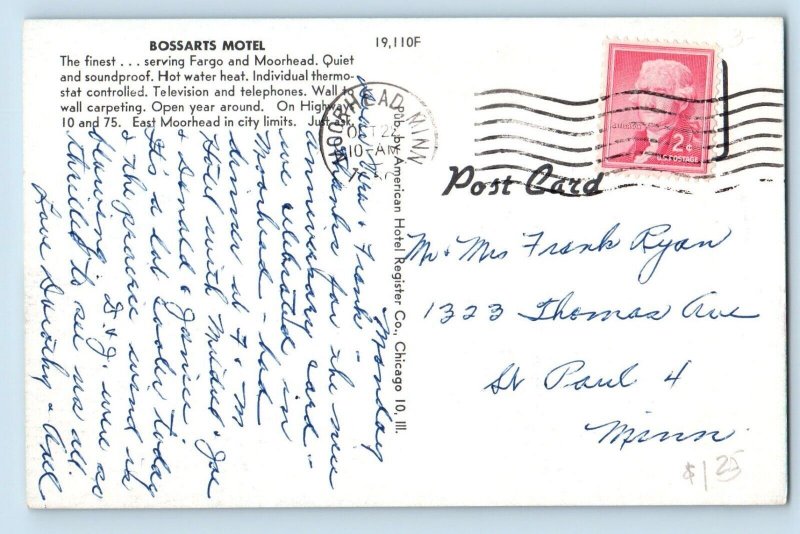 BOSSARTS MOTEL
The finest . . . serving Fargo and Moorhead. Quiet
and soundproof. Hot water heat. Individual thermo-
stat controlled. Television and telephones. Wall to
wall carpeting. Open year around. On Highway
10 and 75. East Moorhead in city limits. Just ask.
19,110F
Pub. by American Hotel Register Co., Chicago 10, Ill.
MOORHEAD MINN
OCT
10-AM
2¢
U.S. POSTAGE
Post Card
Mr & Mrs Frank Ryan
1323 Thomas Ave
St Paul 4
Minn
$125
Monday
& Frank -
Thanks for the nice
anniversary card -
we celebrated in
Moorhead - had
dinner at F & M
Hotel with & Joe
& Donald & Janice
It's a lot cooler today
& the prairie wind is
blowing. D & J. were so
thrilled to see us all.
Love Dorothy &